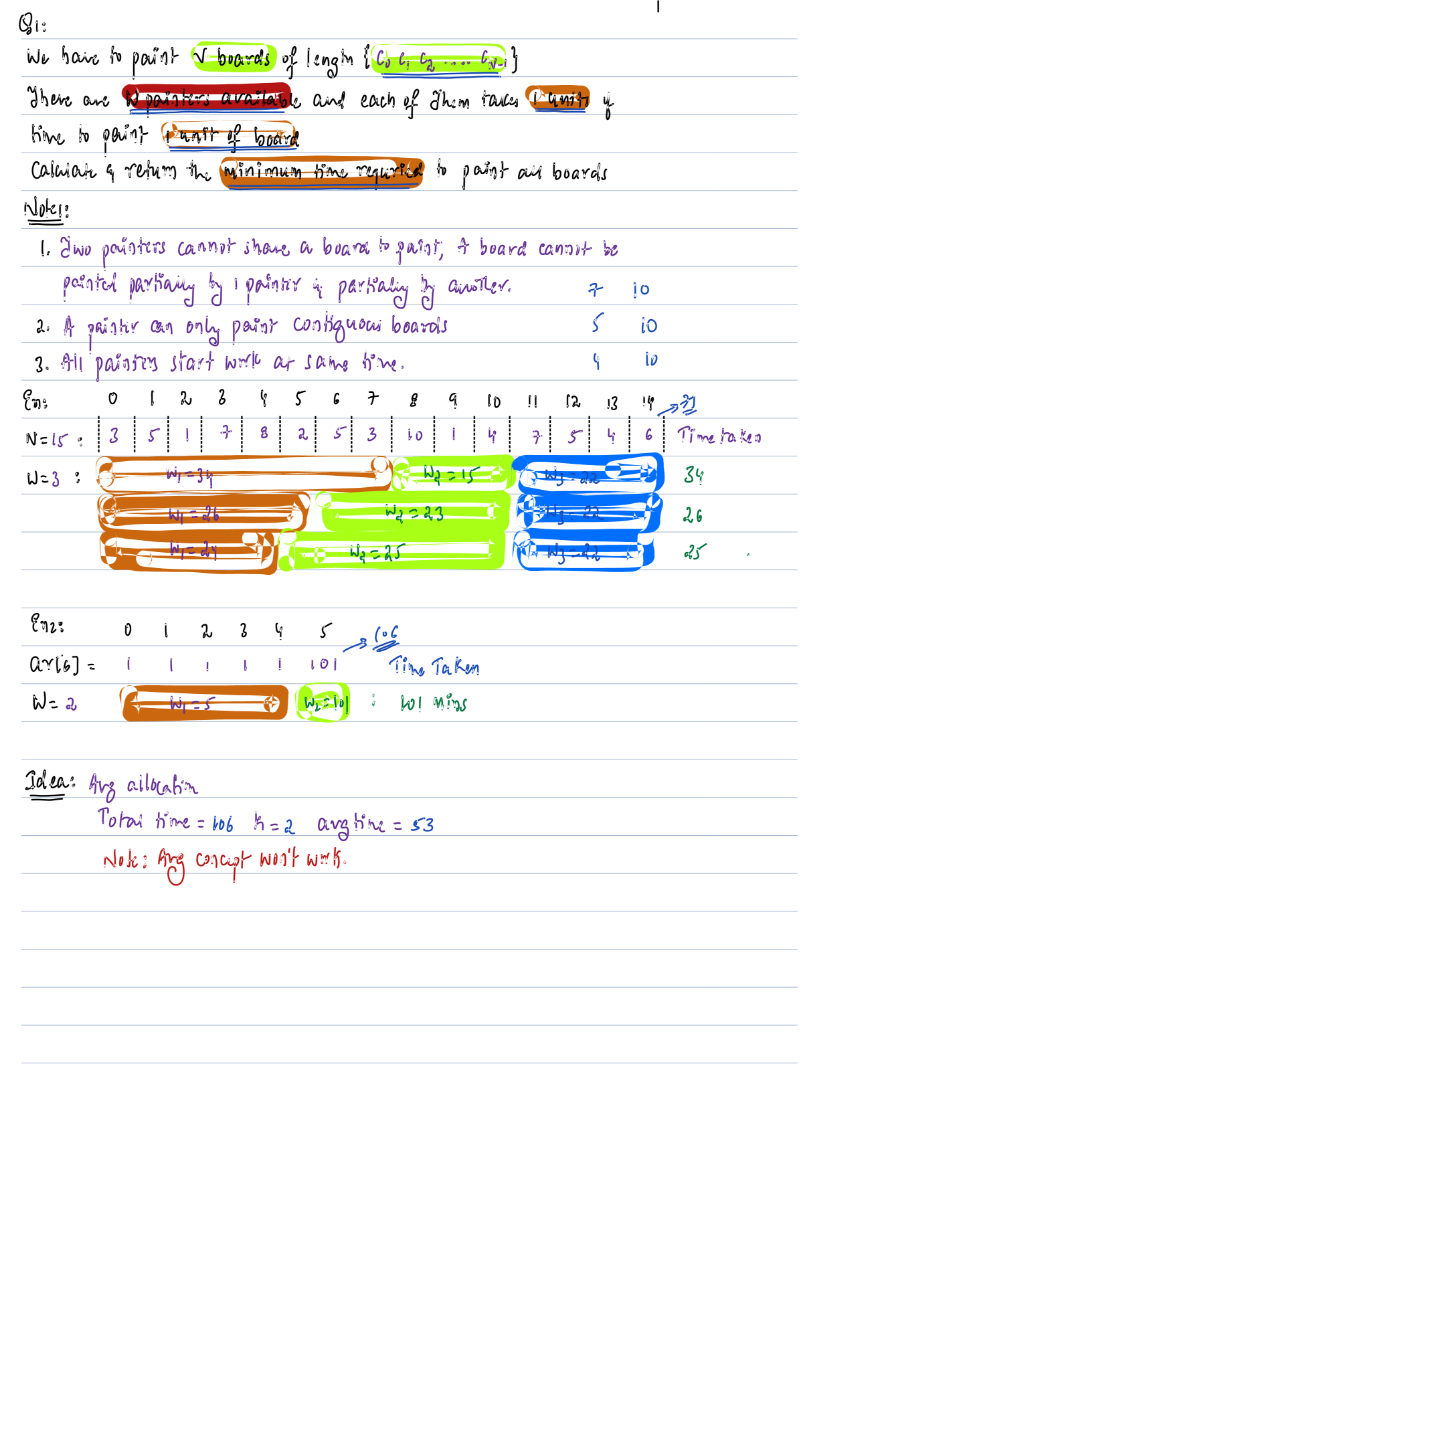 Q1:
We have to paint N boards of length {C0 C1 C2 .... CN-1}
There are W painters available and each of them takes 1 unit of
time to paint 1 unit of board
Calculate & return the minimum time required to paint all boards
Note:
1. Two painters cannot share a board to paint, A board cannot be
painted partially by 1 painter & partially by another.
7 10
2. A painter can only paint contiguous boards
5 10
3. All painters start work at same time.
4 10
Ex1: 0 1 2 3 4 5 6 7 8 9 10 11 12 13 14 → 71
N=15 : 3 5 1 7 8 2 5 3 10 1 4 7 5 4 6 Time taken
W=3 : W1=34 W2=15 W3=22 34
W1=26 W2=23 W3=22 26
W1=24 W2=25 W3=22 25
Ex2: 0 1 2 3 4 5 → 106
ar[6] = 1 1 1 1 1 101 Time Taken
W=2 W1=5 W2=101 : 101 mins
Idea: Avg allocation
Total time = 106 k=2 avg time = 53
Note: Avg concept won't work.